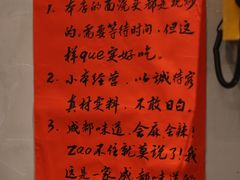 1. 本店的面浇头都是现炒
的,需要等待时间,但这
样que实好吃。
2. 小本经营,以诚待客
真材实料,不敢日白。
3. 成都味道,会麻会辣!
zao不住就莫说了!我
这是一家成都味道的